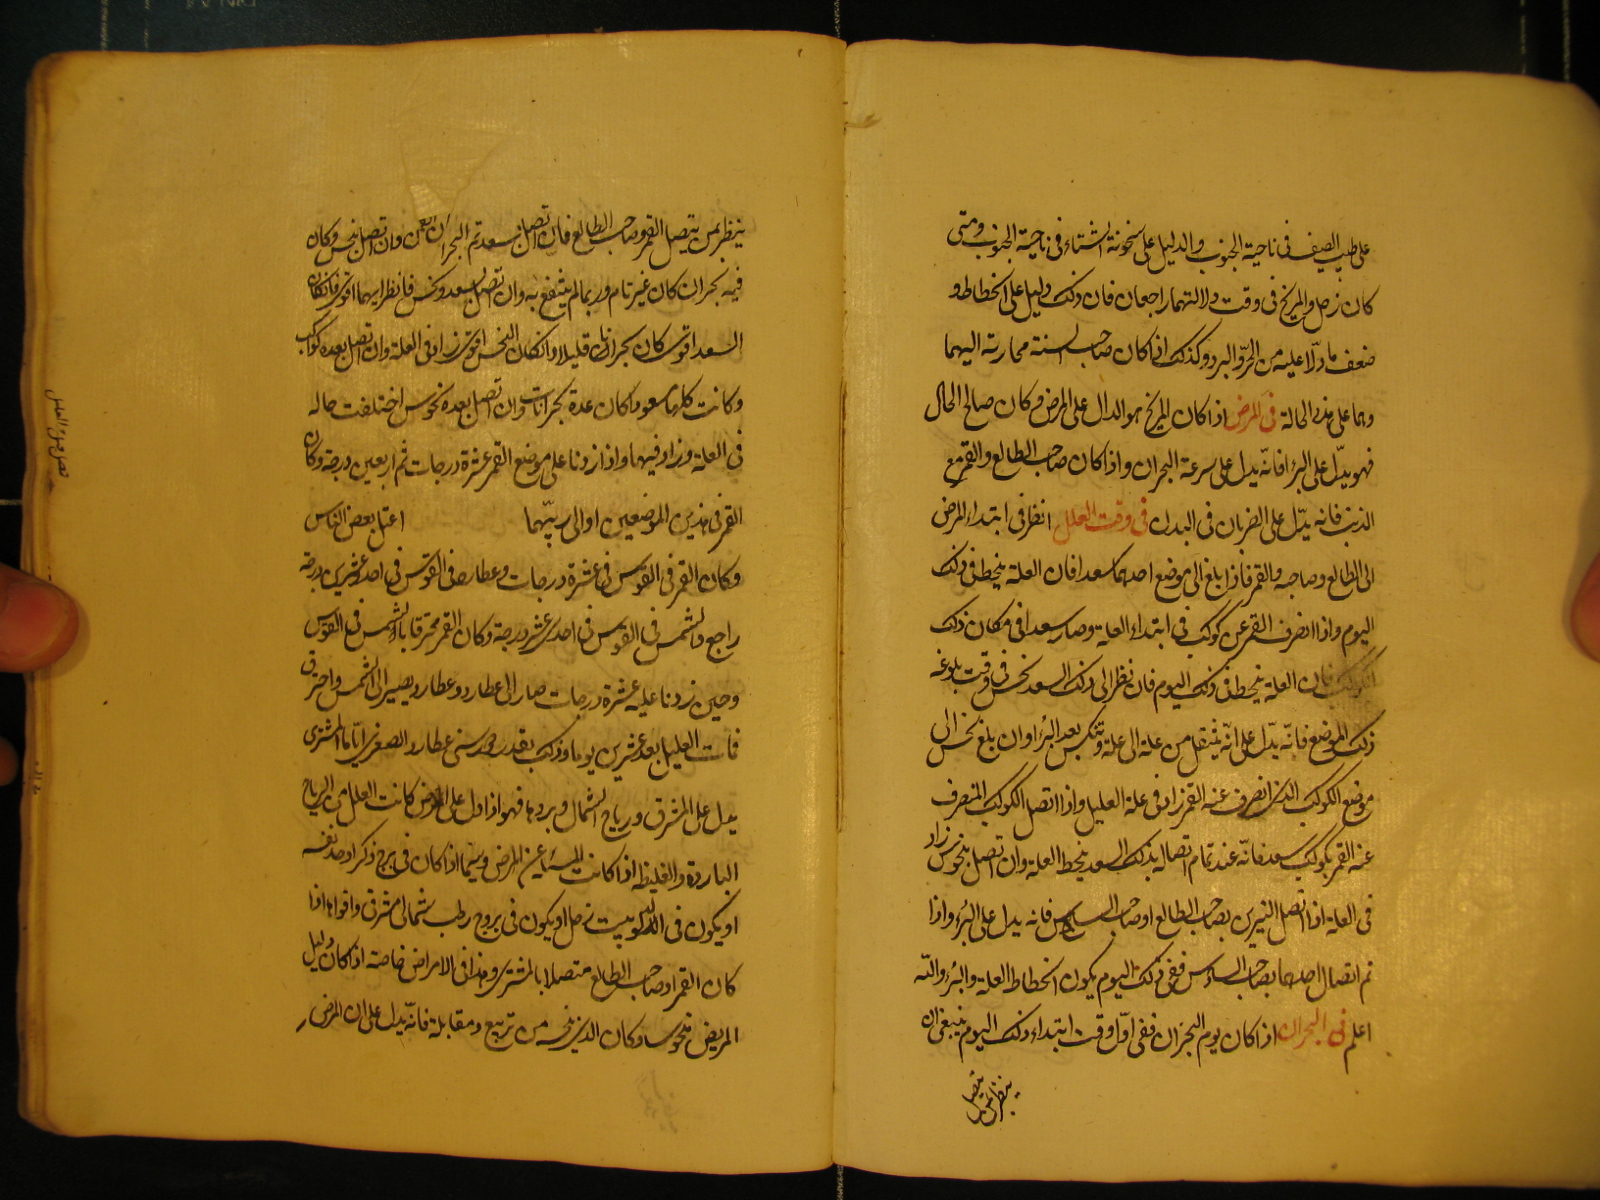 على طيب الصيف فى ناحية الجنوب والدليل على سخونة الشتاء فى ناحية الجنوب ومتى
كان زحل والمريخ فى وقت دلالتهما راجعان فان ذلك دليل على انحطاط و
ضعف ما دلّا عليه من الحرّ والبرد وكذلك اذا كان صاحب السنة ممازجة اليهما
وهما على هذه الحالة فى المرض اذا كان المريخ هو الدال على المرض وكان صالح الحال
فهو يدّل على البرء فانّه يدل على سرعة البحران واذا كان صاحب الطالع والقمر مع
الذنب فانه يدّل على الضربان فى البدن فى وقت العلل انظر فى ابتداء المرض
الى الطالع وصاحبه والقمر فاذا بلغ الى موضع احدهما سعد فان العلة ينحط فى ذلك
اليوم واذا انصرف القمر عن كوكب فى ابتداء العلة وصار سعد فى مكان ذلك
الكوكب فان العلة ينحط فى ذلك اليوم فان نظر الى ذلك السعد نحس فى وقت بلوغه
ذلك الموضع فانّه يدّل على انّه ينتقل من علة الى علة وتنكس بعد البرء وان بلغ نحس الى
موضع الكوكب الذى انصرف عنه القمر زاد فى علة العليل واذا اتصل الكوكب المنصرف
عنه القمر بكوكب سعد فانّه عند تمام اتصاله بذلك السعد ينحط العلة وان اتصل بنحوس زاد
فى العلة اذا اتصل النيرين بصاحب الطالع او صاحب السادس فانه يدل على البرء واذا
تم اتصال احدهما بصاحب السادس ففى ذلك اليوم يكون انحطاط العلة والبرء والله
اعلم فى البحران اذا كان يوم البحران ففى اوّل وقت ابتداء ذلك اليوم ينبغى ان
ينظر بمن يتصل
ينظر بمن يتصل القمر وصاحب الطالع فان اتصل بسعد تم البحران وان اتصل بنحس وكان
فيه بحران كان غير تام وربما لم ينتفع به وان اتصل بسعد ونحس فانظر ايهما اقوى فان كان
السعد اقوى كان بحران قليلا وان كان النحس اقوى زاد فى العلة وان اتصل بعده كواكب
وكانت كلها سعودا كان عدة بحرانات وان اتصل بعده نحوس اختلفت حاله
فى العلة وزاد فيها واذا زدنا على موضع القمر عشرة درجات ثم اربعين درجة وكان
القمر فى هذين الموضعين اعتل بعض الناس
وكان القمر فى القوس فى عشرة درجات وعطارد فى القوس فى احد وعشرين درجة
راجع والشمس فى القوس فى احدى عشر درجة وكان القمر محترقا بالشمس فى القوس
وحين زدنا عليه عشرة درجات صار الى عطارد وعطارد يصير الى الشمس واحترق
فمات العليل بعد عشرين يوما وذلك بقدر سنى عطارد الصغرى امّا المشترى
يدل على المشرق ورياح الشمال وبردها فهو اذا دل على المرض كانت العلل من الرياح
الباردة والغليظة اذا كانت المرض وسيّما اذا كان فى برج ذكر او حد نفسه
او يكون فى بيت زحل او يكون فى بروج رطب شمالى مشرق واقواها اذا
كان القمر او صاحب الطالع متصلا بالمشترى وهذا فى الامراض خاصة اذا كان دليل
المريض منحوسا وكان الذى نحسه من تربيع ومقابلة فانّه يدل على ان المرض